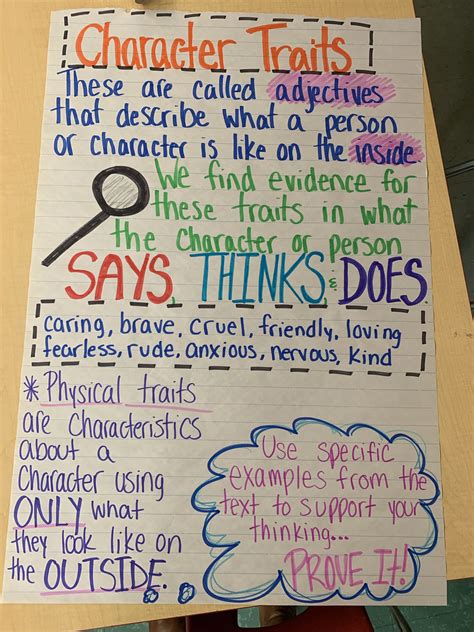 Character Traits
These are called adjectives
that describe what a person
or character is like on the inside
We find evidence for
these traits in what
the character or person
SAYS, THINKS, & DOES.
caring, brave, cruel, friendly, loving
fearless, rude, anxious, nervous, kind
* Physical traits
are characteristics
about a
character using
ONLY what
they look like on
the OUTSIDE.
Use specific
examples from the
text to support your
thinking...
PROVE IT!